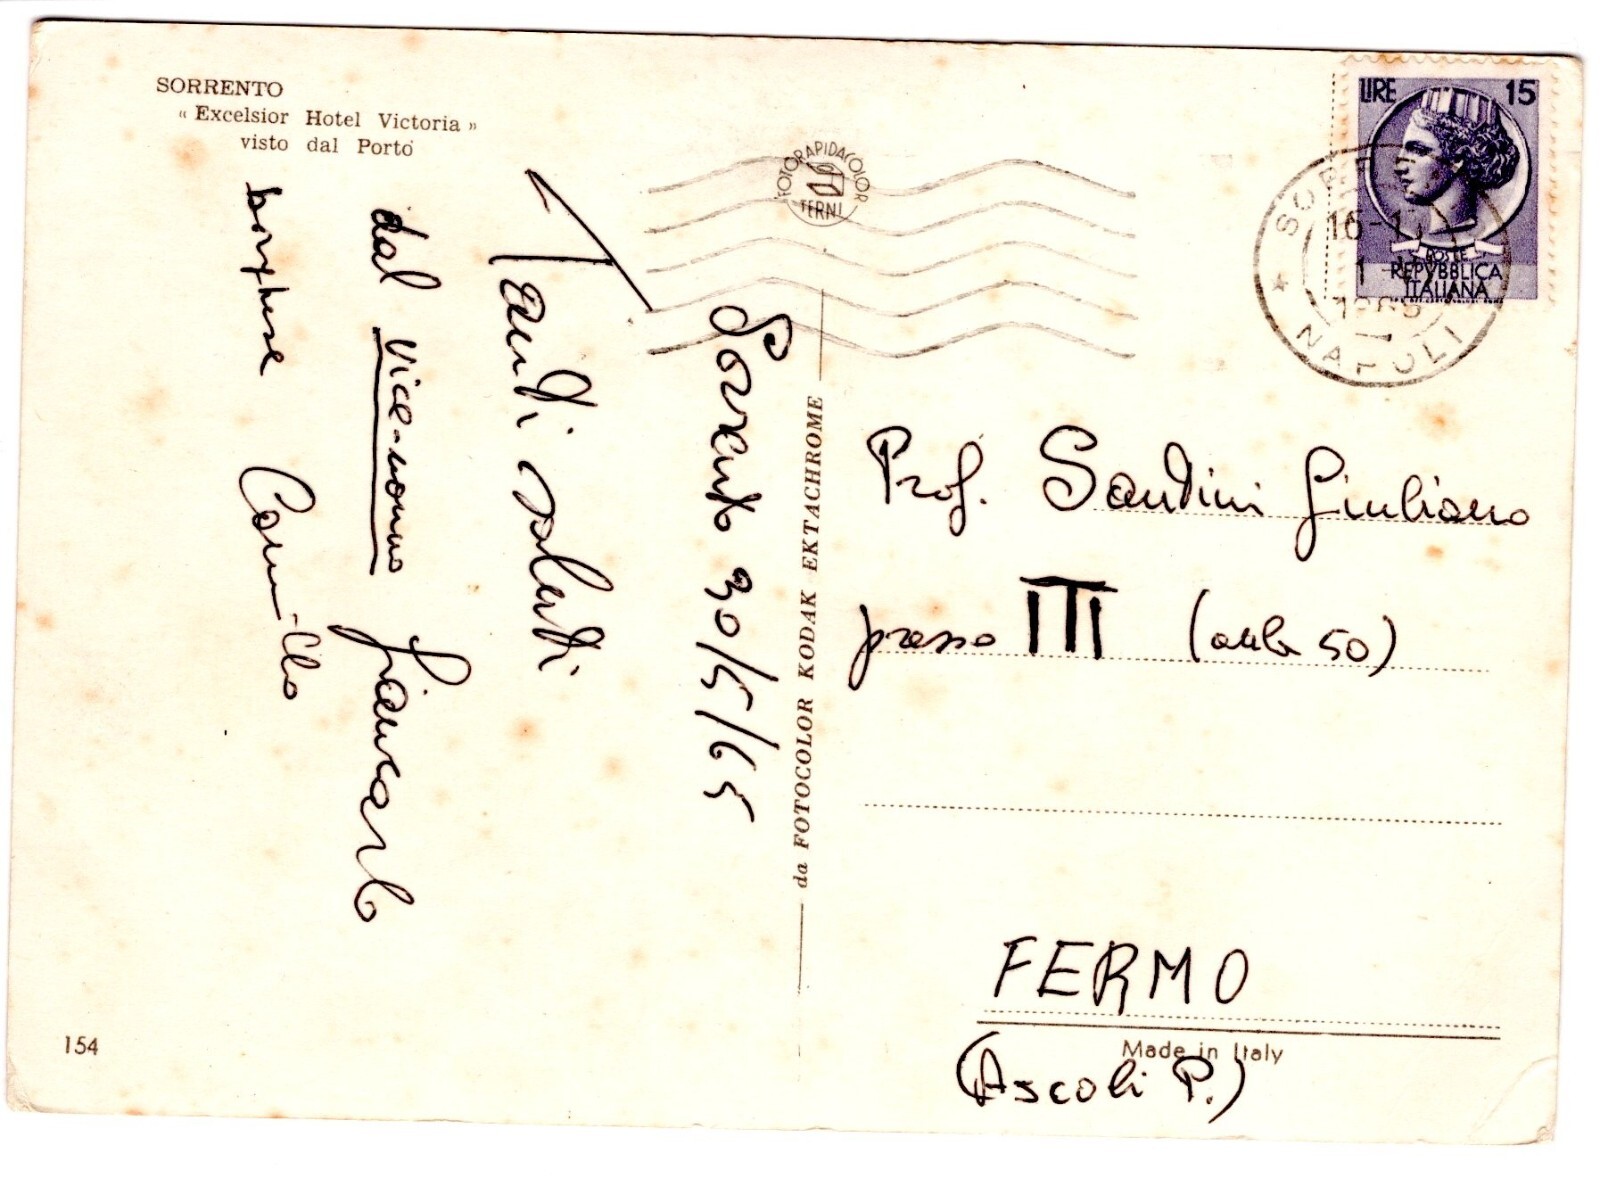 SORRENTO
« Excelsior Hotel Victoria »
visto dal Porto
Sorrento 30/5/65
Tanti saluti
dal Vice-nonno Giancarlo
borghese Cam-illo
154
da FOTOCOLOR KODAK EKTACHROME
FOTORAPIDACOLOR
TERNI
LIRE 15
POSTE
REPVBBLICA
ITALIANA
NAPOLI
Prof. Santini Giuliano
presso ITI (aula 50)
FERMO
Made in Italy
(Ascoli P.)